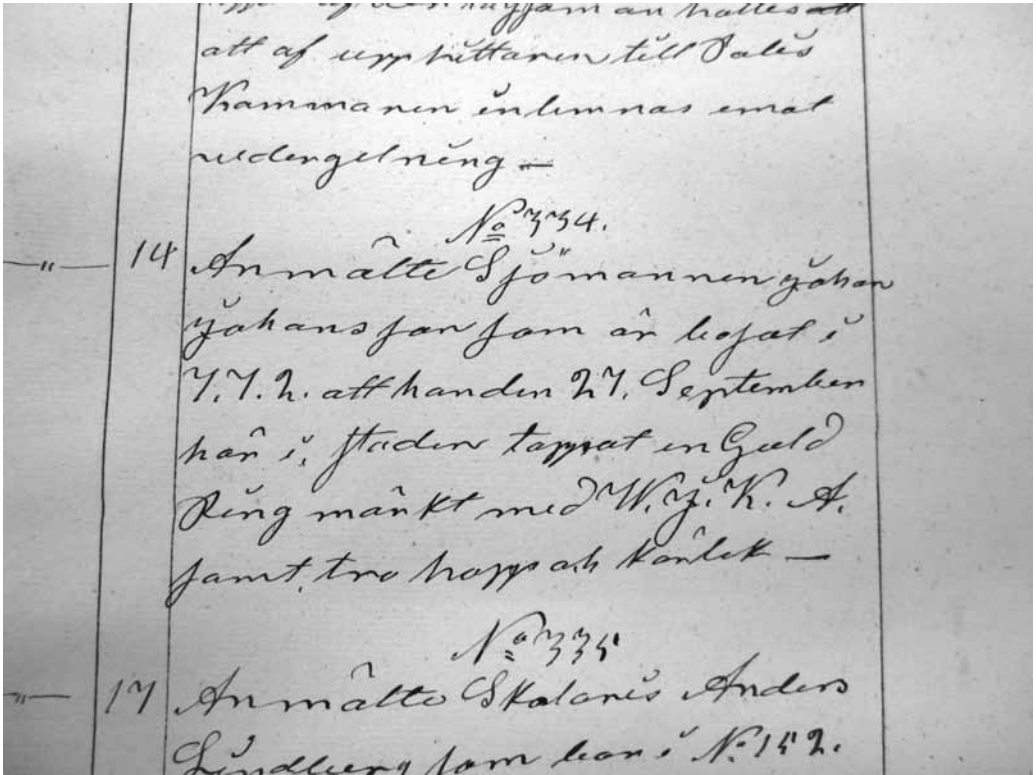 att af upphittaren till Polis
Kammaren inlemnas emot
vedergelning —
No 334.
—"— 14 Anmälte Sjömannen Johan
Johansson som är bosat i
7.7.2. att han den 27. September
här i staden tappat en Guld
Ring märkt med W. J. K. A.
samt tro hopp och kärlek —
No 335
—"— 17 Anmälte Skolaris Anders
Lindberg som bor i No 152.